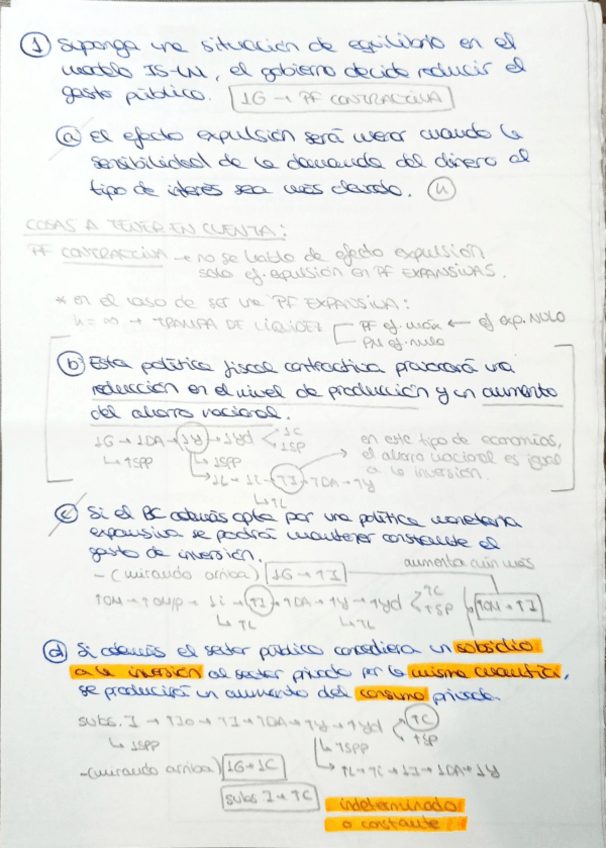 ① Suponga una situación de equilibrio en el
modelo IS-LM, el gobierno decide reducir el
gasto público. ↓G → PF CONTRACTIVA
ⓐ El efecto expulsión será menor cuando la
sensibilidad de la demanda del dinero al
tipo de interés sea más elevado. (h)
COSAS A TENER EN CUENTA:
PF CONTRACTIVA → no se habla de efecto expulsión
solo ef. expulsión en PF EXPANSIVAS.
* en el caso de ser una PF EXPANSIVA:
h = ∞ → TRAMPA DE LIQUIDEZ PF ef. máx ← ef exp. NULO
PM ef. nulo
ⓑ Esta política fiscal contractiva provocará una
reducción en el nivel de producción y un aumento
del ahorro nacional.
↓G → ↓DA → ↓Y → ↓Yd ↓C
↓SP
↳ ↑SPP ↳ ↓SPP
↳ ↓L → ↓i → ↑I → ↑DA → ↑Y
↳ ↑L
en este tipo de economías,
el ahorro nacional es igual
a la inversión.
ⓒ Si el BC además opta por una política monetaria
expansiva se podrá mantener constante el
gasto de inversión.
- (mirando arriba) ↓G → ↑I
aumenta aún más
↑OM → ↑OM/P → ↓i → ↑I → ↑DA → ↑Y → ↑Yd ↑C
↑SP
↑OM → ↑I
↳ ↑L ↳ ↑L
ⓓ Si además el sector público concediera un subsidio
a la inversión al sector privado por la misma cuantía,
se producirá un aumento del consumo privado.
subs. I → ↑Io → ↑I → ↑DA → ↑Y → ↑Yd ↑C
↑SP
↳ ↓SPP ↳ ↑SPP
↳ ↑L → ↑i → ↓I → ↓DA → ↓Y
- (mirando arriba) ↓G → ↓C
subs. I → ↑C
indeterminado
o constante